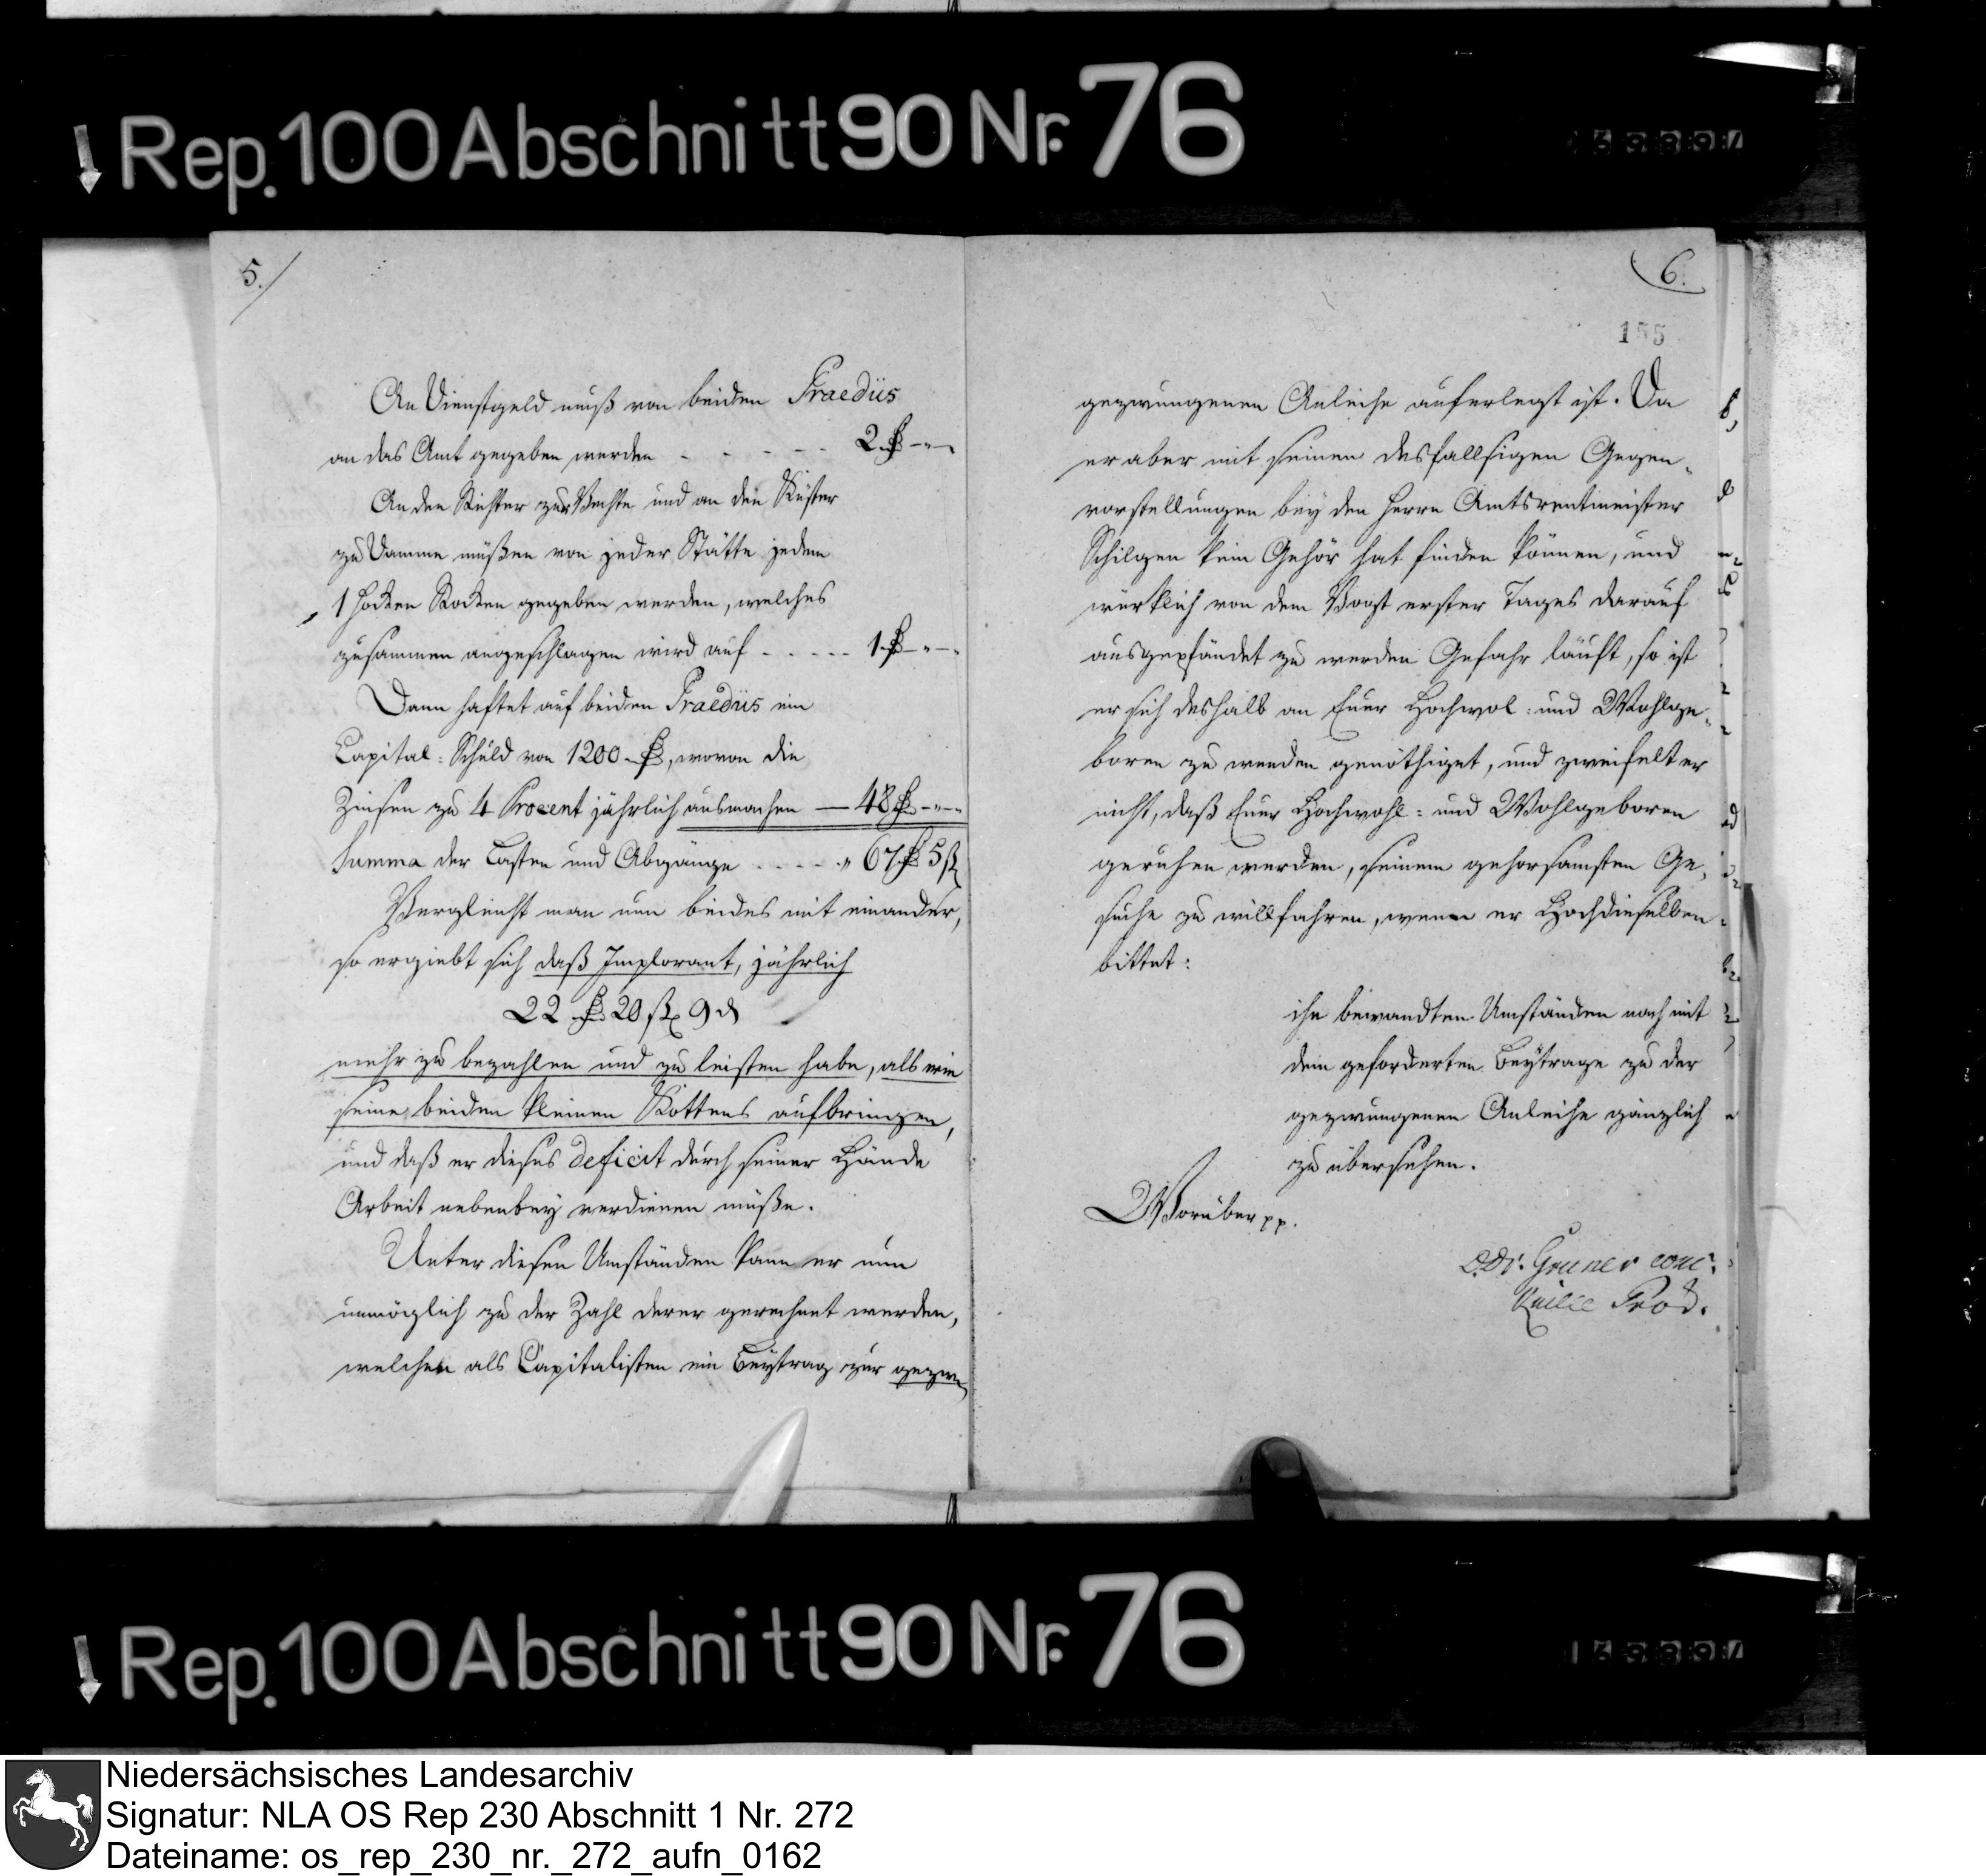 Rep. 100 Abschnitt 90 Nr. 76
5.
An Dienstgeld muß von beiden Praediis
an das Amt gegeben werden - - - - - 2 rt - " -
An den Richter zur Vechte und an den Küster
zu Damme müßen von jeder Stätte jedem
1 Hocken Rocken gegeben werden, welches
zusammen angeschlagen wird auf - - - - - 1 rt - " -
Dann haftet auf beiden Praediis ein
Capital-Schuld von 1200 rt, wovon die
Zinsen zu 4 Procent jährlich ausmachen — 48 rt - " -
Summa der Lasten und Abgänge - - - - " 67 rt 5 ß
Vergleicht man nun beides mit einander,
so ergiebt sich daß Implorant, jährlich
22 rt 20 ß 9 d
mehr zu bezahlen und zu leisten habe, als wie
seine beiden kleinen Kottens aufbringen,
und daß er dieses deficit durch seiner Hände
Arbeit nebenbey verdienen müße.
Unter diesen Umständen kann er nun
unmöglich zu der Zahl derer gerechnet werden,
welchen als Capitalisten ein Beytrag zur gezwu
6.
155
gezwungenen Anleihe auferlegt ist. Da
er aber mit seinen desfallsigen Gegen-
vorstellungen bey den Herrn Amtsrentmeister
Schilgen kein Gehör hat finden können, und
würklich von dem Vogt erster Tages darauf
ausgepfändet zu werden Gefahr läuft, so ist
er sich deshalb an Euer Hochwol- und Wohlge-
boren zu wenden genöthiget, und zweifelt er
nicht, daß Euer Hochwohl- und Wohlgeboren
geruhen werden, seinem gehorsamsten Ge-
suche zu willfahren, wenn er Hochdieselben
bittet:
ihn bewandten Umständen nach mit
dem geforderten Beytrage zu der
gezwungenen Anleihe gänzlich
zu übersehen.
Worüber pp.
Dr. Gruner conc.
Prod.
Rep. 100 Abschnitt 90 Nr. 76
Niedersächsisches Landesarchiv
Signatur: NLA OS Rep 230 Abschnitt 1 Nr. 272
Dateiname: os_rep_230_nr._272_aufn_0162